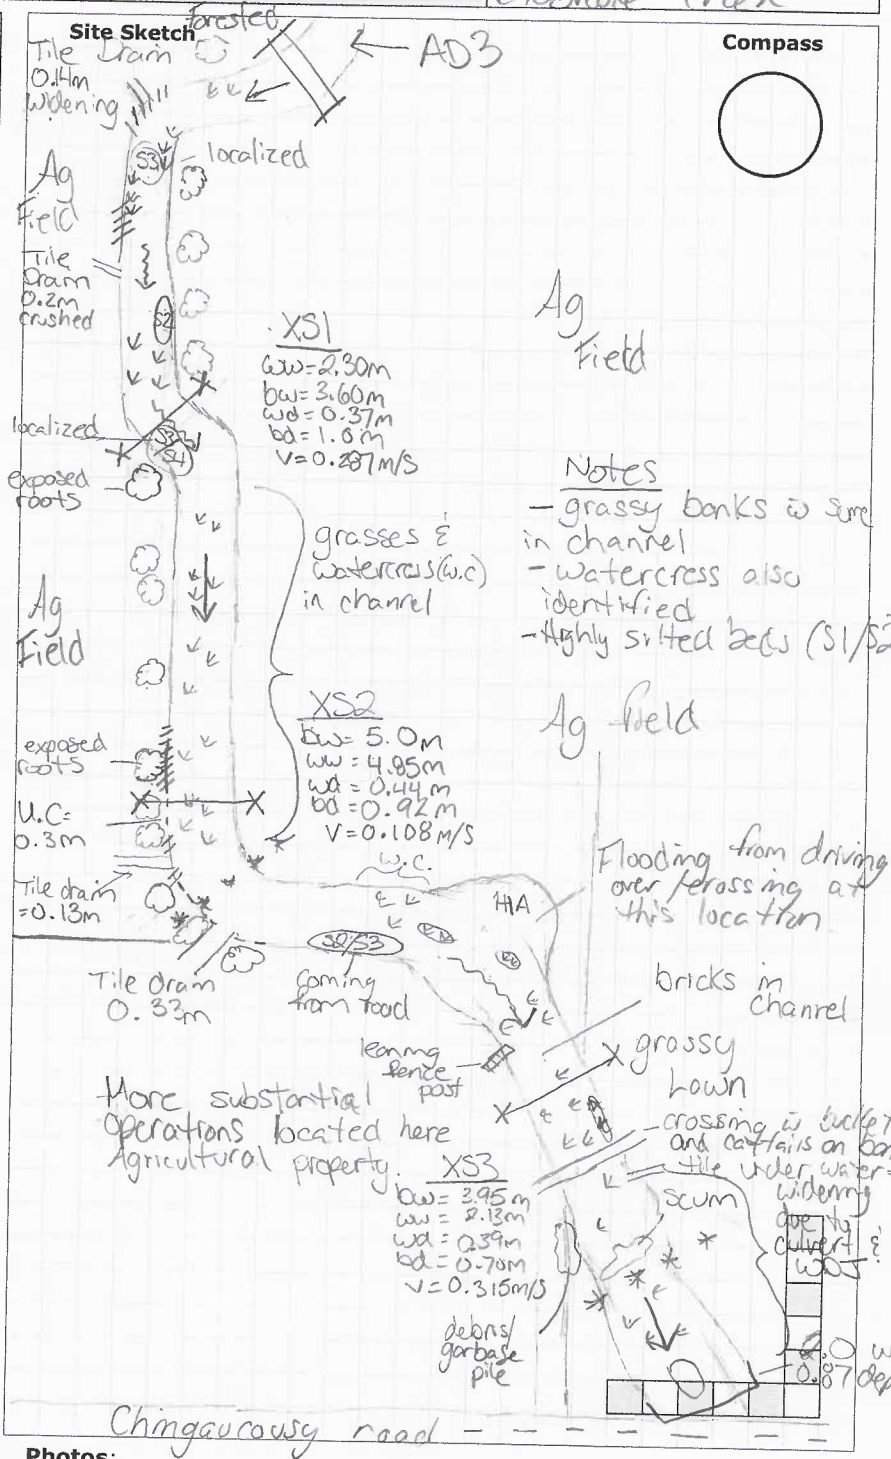 Site Sketch
Forested
Compass
Tile Drain
0.14m
widening
AD3
S3
localized
Ag
Field
Tile
Drain
0.2m
crushed
S2
Ag
Field
XS1
ww=2.30m
bw=3.60m
wd=0.37m
bd=1.0m
V=0.287m/s
localized
S3
S4
exposed
roots
grasses &
watercress(w.c)
in channel
Notes
- grassy banks w some
in channel
- watercress also
identified
- Highly silted beds (S1/S2
Ag
Field
XS2
bw= 5.0m
ww= 4.85m
wd=0.44m
bd=0.92m
V=0.108m/s
Ag field
exposed
roots
U.C=
0.3m
Tile drain
=0.13m
w.c.
HA
Flooding from driving
over/crossing at
this location
S2/S3
Tile drain
0.33m
coming
from road
bricks in
channel
leaning
fence
post
grassy
Lawn
More substantial
operations located here
Agricultural property.
crossing w
and cattails on
tile under water=
widening
due to
culvert &
WDJ
XS3
bw= 3.95m
ww= 2.13m
wd= 0.39m
bd=0.70m
V=0.315m/s
scum
debris/
garbage
pile
2.0 w
0.87 dep
Chingaucousy road
Photos: